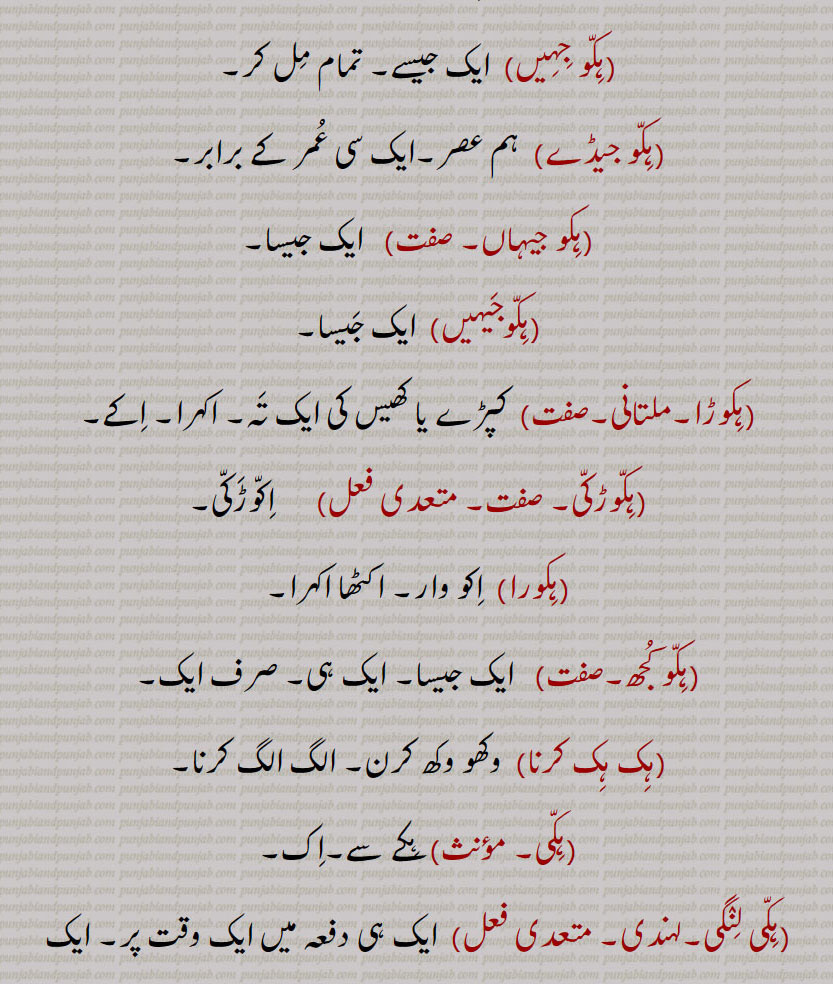 (ہِکّو جِہِیں) ایک جیسے۔ تمام مِل کر۔
(ہِکّو جیڈے) ہم عصر۔ایک سی عُمر کے برابر۔
(ہِکو جیہاں۔ صفت) ایک جیسا۔
(ہِکّوجَیہیں) ایک جَیسا۔
(ہِکوڑا۔ملتانی۔صفت) کپڑے یا کھیس کی ایک تَہ۔ اکہرا۔ اِکے۔
(ہِکّوڑکّی۔ صفت۔ متعدی فعل) اِکوّڑَکّی۔
(ہِکورا) اِکو وار۔ اکٹھا اکہرا۔
(ہِکّو کُجھ۔صفت) ایک جیسا۔ ایک ہی۔ صرف ایک۔
(ہِک ہِک کرنا) وکھو وکھ کرن۔ الگ الگ کرنا۔
(ہِکّی۔ مؤنث) ہِکے سے۔اِک۔
(ہِکّی لِنّگی۔لہندی۔ متعدی فعل) ایک ہی دفعہ میں ایک وقت پر۔ ایک